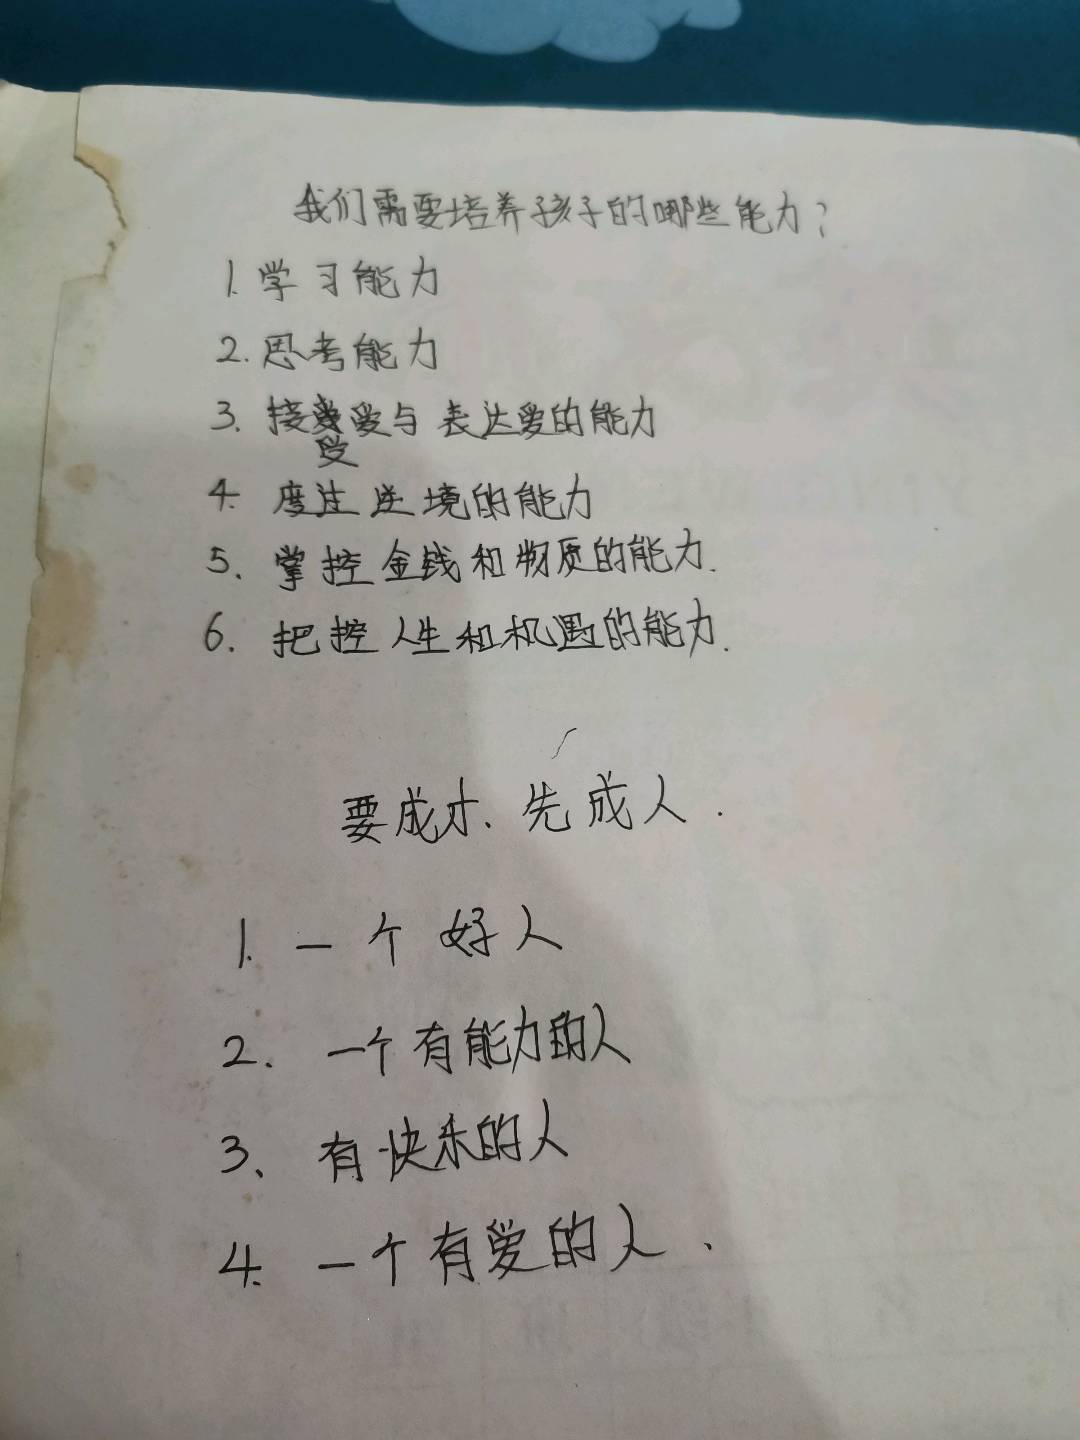 我们需要培养孩子的哪些能力?
1. 学习能力
2. 思考能力
3. 接受爱与表达爱的能力
4. 度过逆境的能力
5、掌控金钱和物质的能力.
6. 把控人生和机遇的能力.
要成才、先成人.
1. 一个好人
2. 一个有能力的人
3、有快乐的人
4. 一个有爱的人、